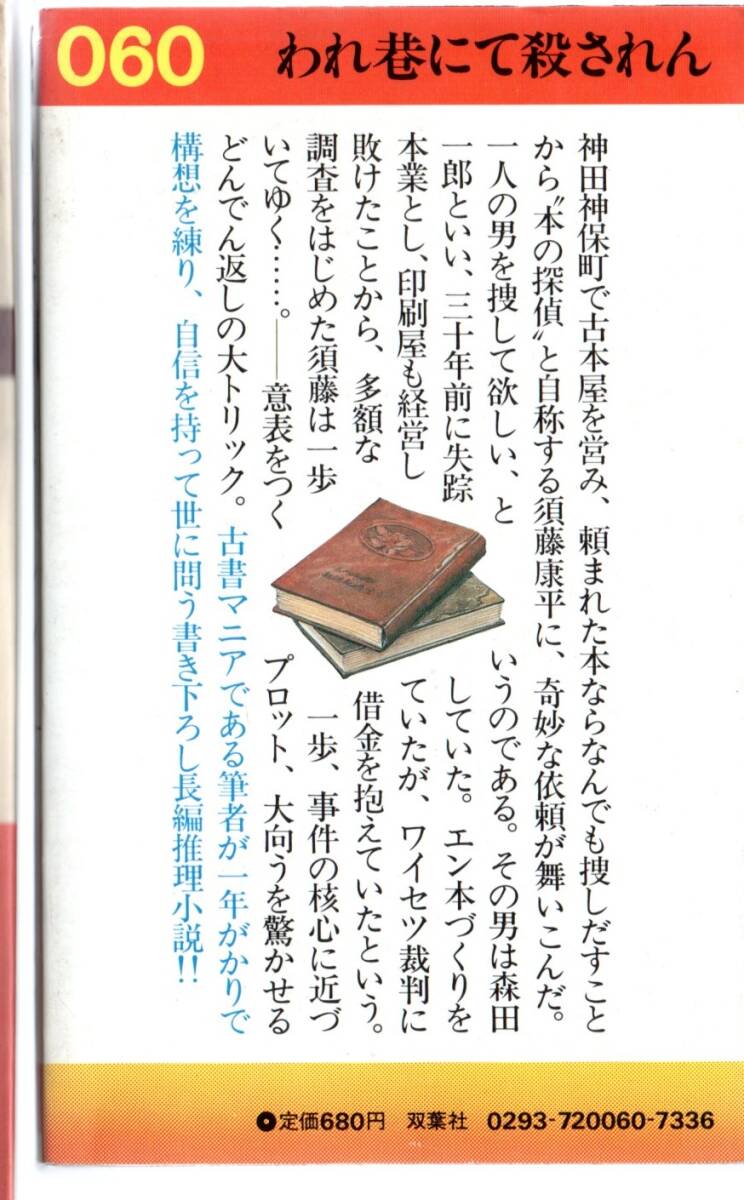 060 われ巷にて殺されん
神田神保町で古本屋を営み、頼まれた本ならなんでも捜しだすこと
から〝本の探偵〟と自称する須藤康平に、奇妙な依頼が舞いこんだ。
一人の男を捜して欲しい、というのである。その男は森田
一郎といい、三十年前に失踪していた。エン本づくりを
本業とし、印刷屋も経営していたが、ワイセツ裁判に
敗けたことから、多額な借金を抱えていたという。
調査をはじめた須藤は一歩一歩、事件の核心に近づ
いてゆく……。――意表をつくプロット、大向うを驚かせる
どんでん返しの大トリック。古書マニアである筆者が一年がかりで
構想を練り、自信を持って世に問う書き下ろし長編推理小説!!
定価680円 双葉社 0293-720060-7336